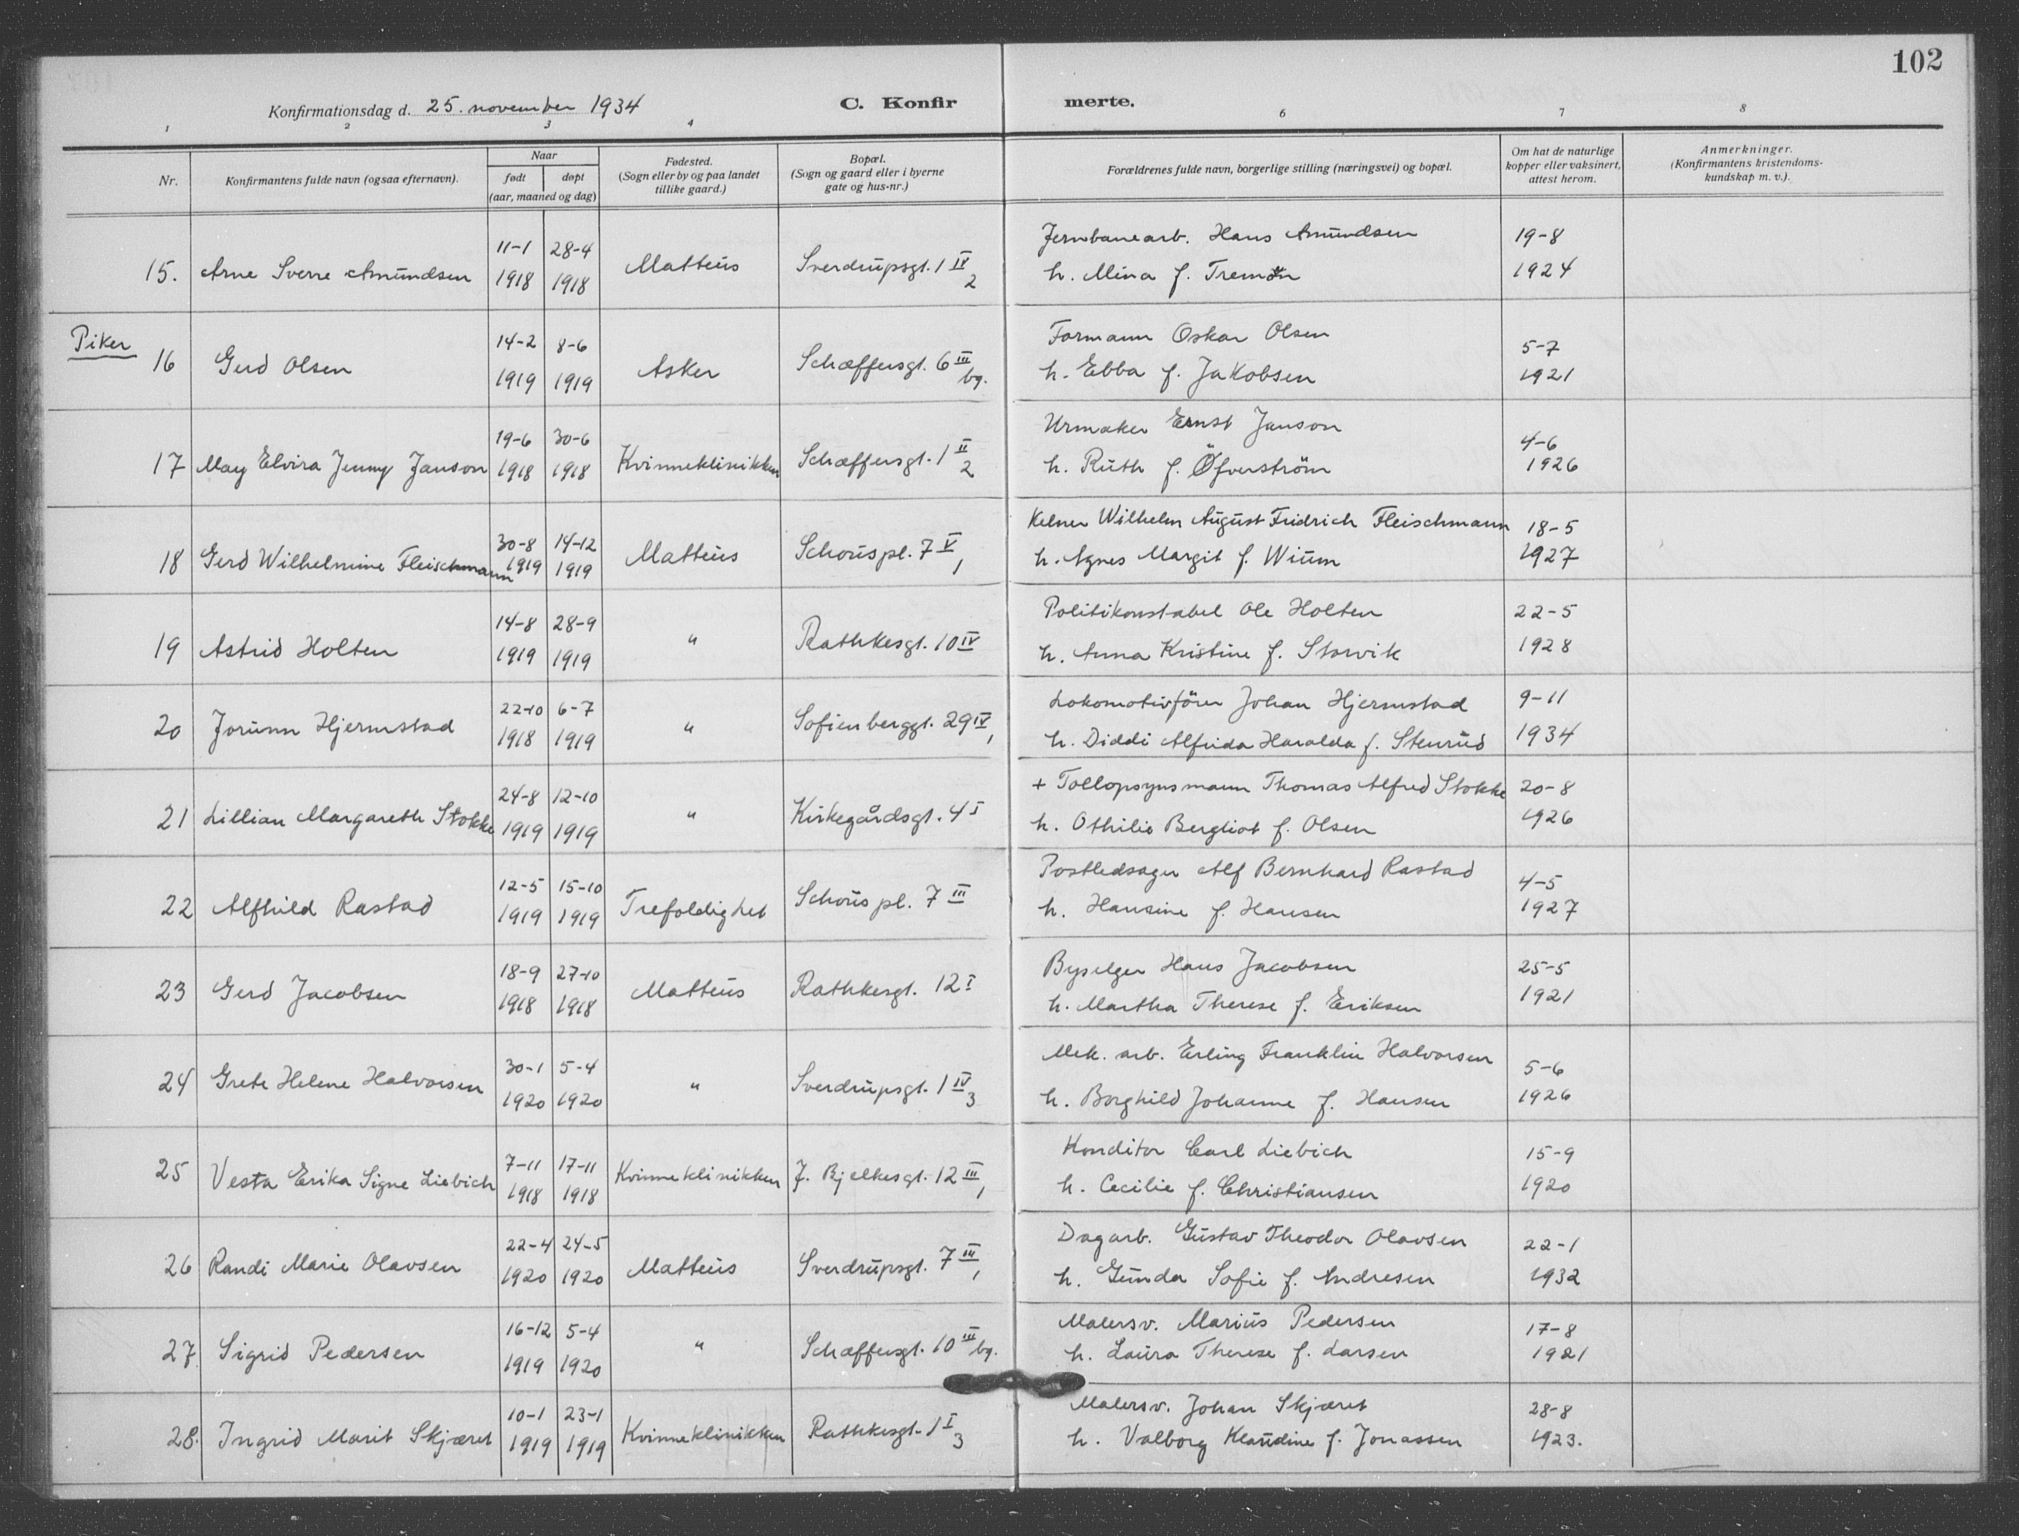 102
Konfirmationsdag d. 25. november 1934 C. Konfirmerte.
1 2 3 4 6 7 8
Nr. Konfirmantens fulde navn (ogsaa efternavn). Naar født døpt (aar, maaned og dag) Fødested. (Sogn eller by og paa landet tillike gaard.) Bopæl. (Sogn og gaard eller i byerne gate og hus-nr.) Forældrenes fulde navn, borgerlige stilling (næringsvei) og bopæl. Om hat de naturlige kopper eller vaksinert, attest herom. Anmerkninger. (Konfirmantens kristendomskundskap m. v.).
11-1 28-4 Jernbanearb. Hans Amundsen 19-8
15. Arne Sverre Amundsen 1918 1918 Matteus Sverdrupsgt. 1 IV 2 h. Mina f. 1924
Piker
14-2 8-6 Formann Oskar Olsen 5-7
16 Gerd Olsen 1919 1919 Asker Schæffersgt. 6 III bg. h. Ebba f. Jakobsen 1921
19-6 30-6 Urmaker Ernst Janson 4-6
17 May Elvira Jenny Janson 1918 1918 Kvinneklinikken Schæffersgt. 1 II 2 h. Ruth f. Öfverström 1926
30-8 14-12 Kelner Wilhelm August Fridrich Fleischmann 18-5
18 Gerd Wilhelmine Fleischmann 1919 1919 Matteus Schouspl. 7 V 1 h. Agnes Margit f. Wium 1927
14-8 28-9 Politikonstabel Ole Holten 22-5
19 Astrid Holten 1919 1919 " Rathkesgt. 10 IV h. Anna Kristine f. Storvik 1928
22-10 6-7 Lokomotivförer Johan Hjermstad 9-11
20 Jorunn Hjermstad 1918 1919 " Sofienberggt. 29 IV 1 h. Diddi Alfrida Haralda f. Stenrud 1934
24-8 12-10 + Tollopsynsmann Thomas Alfred Stokke 20-8
21 Lillian Margareth Stokke 1919 1919 " Kirkegårdsgt. 4 I h. Othilie Bergliot f. Olsen 1926
12-5 15-10 Postledsager Alf Bernhard Rastad 4-5
22 Alfhild Rastad 1919 1919 Trefoldighet Schouspl. 7 III h. Hansine f. Hansen 1927
18-9 27-10 Byselger Hans Jacobsen 25-5
23 Gerd Jacobsen 1918 1918 Matteus Rathkesgt. 12 I h. Martha Therese f. Eriksen 1921
30-1 5-4 Mek. arb. Erling Franklin Halvorsen 5-6
24 Grete Helene Halvorsen 1920 1920 " Sverdrupsgt. 1 IV 3 h. Borghild Johanne f. Hansen 1926
7-11 17-11 Konditor Carl Liebich 15-9
25 Vesta Erika Signe Liebich 1918 1918 Kvinneklinikken J. Bjelkesgt. 12 III 1 h. Cecilie f. Christiansen 1920
22-4 24-5 Dagarb. Gustav Theodor Olavsen 22-1
26 Randi Marie Olavsen 1920 1920 Matteus Sverdrupsgt. 7 III 1 h. Gunda Sofie f. Andresen 1932
16-12 5-4 Malersv. Marius Pedersen 17-8
27. Sigrid Pedersen 1919 1920 " Schæffersgt. 10 III bg. h. Laura Therese f. Larsen 1921
10-1 23-1 Malersv. Johan Skjæret 28-8
28. Ingrid Marit Skjæret 1919 1919 Kvinneklinikken Rathkesgt. 1 I 3 h. Valborg Klaudine f. Jonassen 1923.